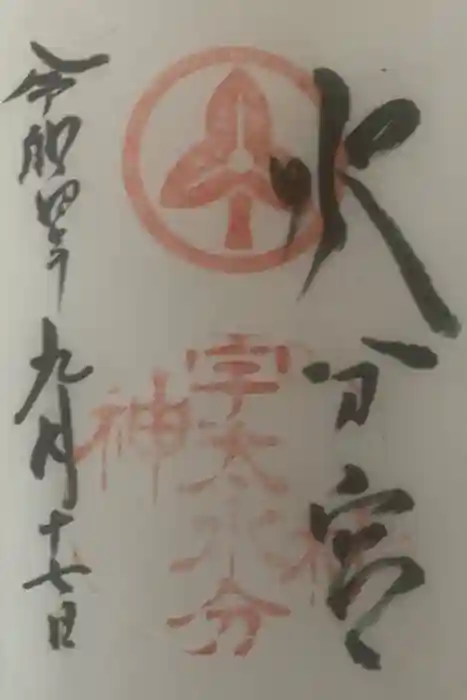 水分宮
宇太水分
神社
令和四年九月十七日